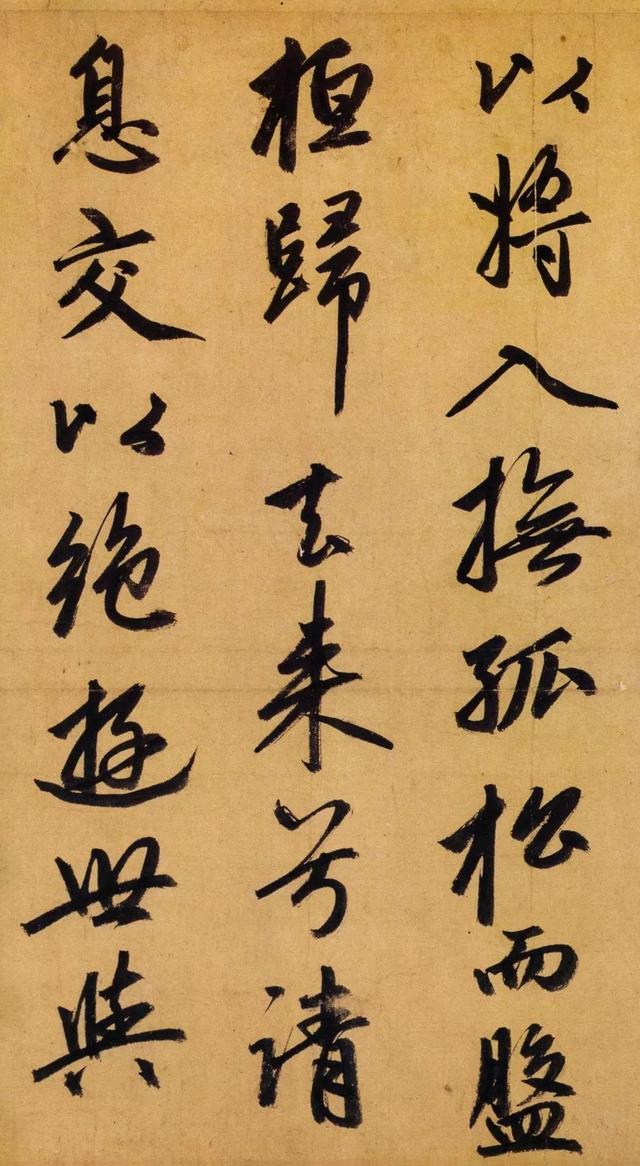 以将入撫孤松而盤
桓歸去来兮請
息交以絶遊世與